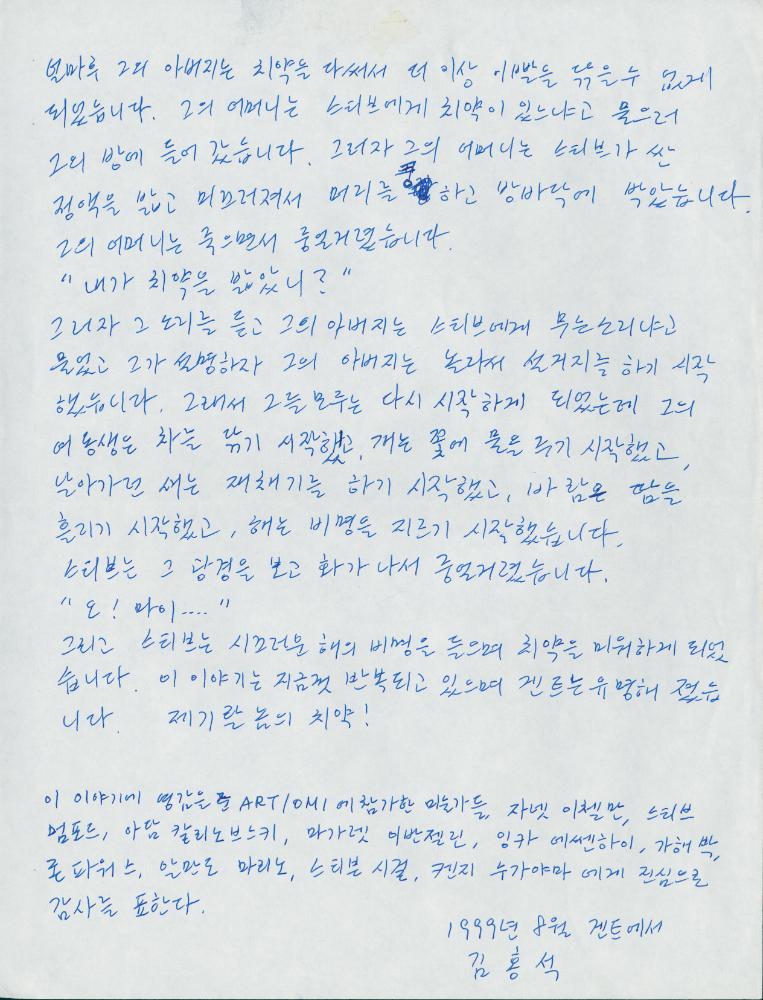 얼마후 그의 아버지는 치약을 다써서 더 이상 이빨을 닦을수 없게
되었습니다. 그의 어머니는 스티브에게 치약이 있느냐고 물으러
그의 방에 들어 갔습니다. 그러자 그의 어머니는 스티브가 싼
정액을 밟고 미끄러져서 머리를 쿵 하고 방바닥에 박았습니다.
그의 어머니는 죽으면서 중얼거렸습니다.
"내가 치약을 밟았니?"
그러자 그 소리를 듣고 그의 아버지는 스티브에게 무슨소리냐고
물었고 그가 설명하자 그의 아버지는 놀라서 설거지를 하기 시작
했습니다. 그래서 그들 모두는 다시 시작하게 되었는데 그의
여동생은 차를 닦기 시작했고, 개는 꽃에 물을 주기 시작했고,
날아가던 새는 재채기를 하기 시작했고, 바람은 땀을
흘리기 시작했고, 해는 비명을 지르기 시작했습니다.
스티브는 그 광경을 보고 화가 나서 중얼거렸습니다.
"오! 마이...."
그리고 스티브는 시끄러운 해의 비명을 들으며 치약을 미워하게 되었
습니다. 이 이야기는 지금껏 반복되고 있으며 겐트는 유명해 졌습
니다. 제기랄 놈의 치약!
이 이야기에 영감을 준 ART/OMI 에 참가한 미술가들, 자넷 이첼만, 스티브
멈포드, 아담 칼리노브스키, 마가렛 이반젤린, 잉카 에쎈하이, 가해 박,
론 파워스, 알만도 마리노, 스티븐 시걸, 켄지 누가야마 에게 진심으로
감사를 표한다.
1999년 8월 겐트에서
김 홍 석